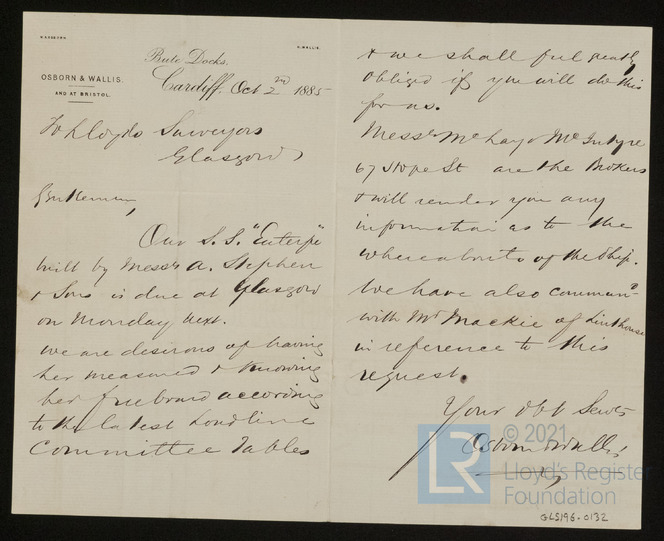 R.S. OSBORN
G. WALLIS.
Bute Docks.
OSBORN & WALLIS.
AND AT BRISTOL.
Cardiff, Oct 2nd 1885
To Lloyds Surveyors
Glasgow
Gentlemen,
Our S.S. "Euterpe"
built by Messrs A. Stephen
& Sons is due at Glasgow
on Monday next.
We are desirous of having
her measured & knowing
her freeboard according
to the latest Loadline
Committee Tables
& we shall feel greatly
obliged if you will do this
for us.
Messrs McLay & McIntyre
67 Hope St are the Brokers
& will render you any
information as to the
whereabouts of the Ship.
We have also commund
with Mr Mackie of Linthouse
in reference to this
request.
Your Obt Servts
Osborn & Wallis
© 2021
LR
Lloyd's Register
Foundation
GLS196-0132